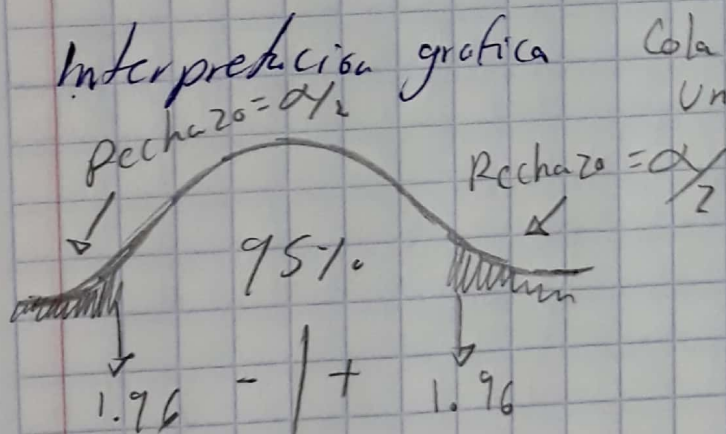 Interpretación grafica
Cola
Un
Rechazo = α/2
Rechazo = α/2
95%.
1.96 - | + 1.96